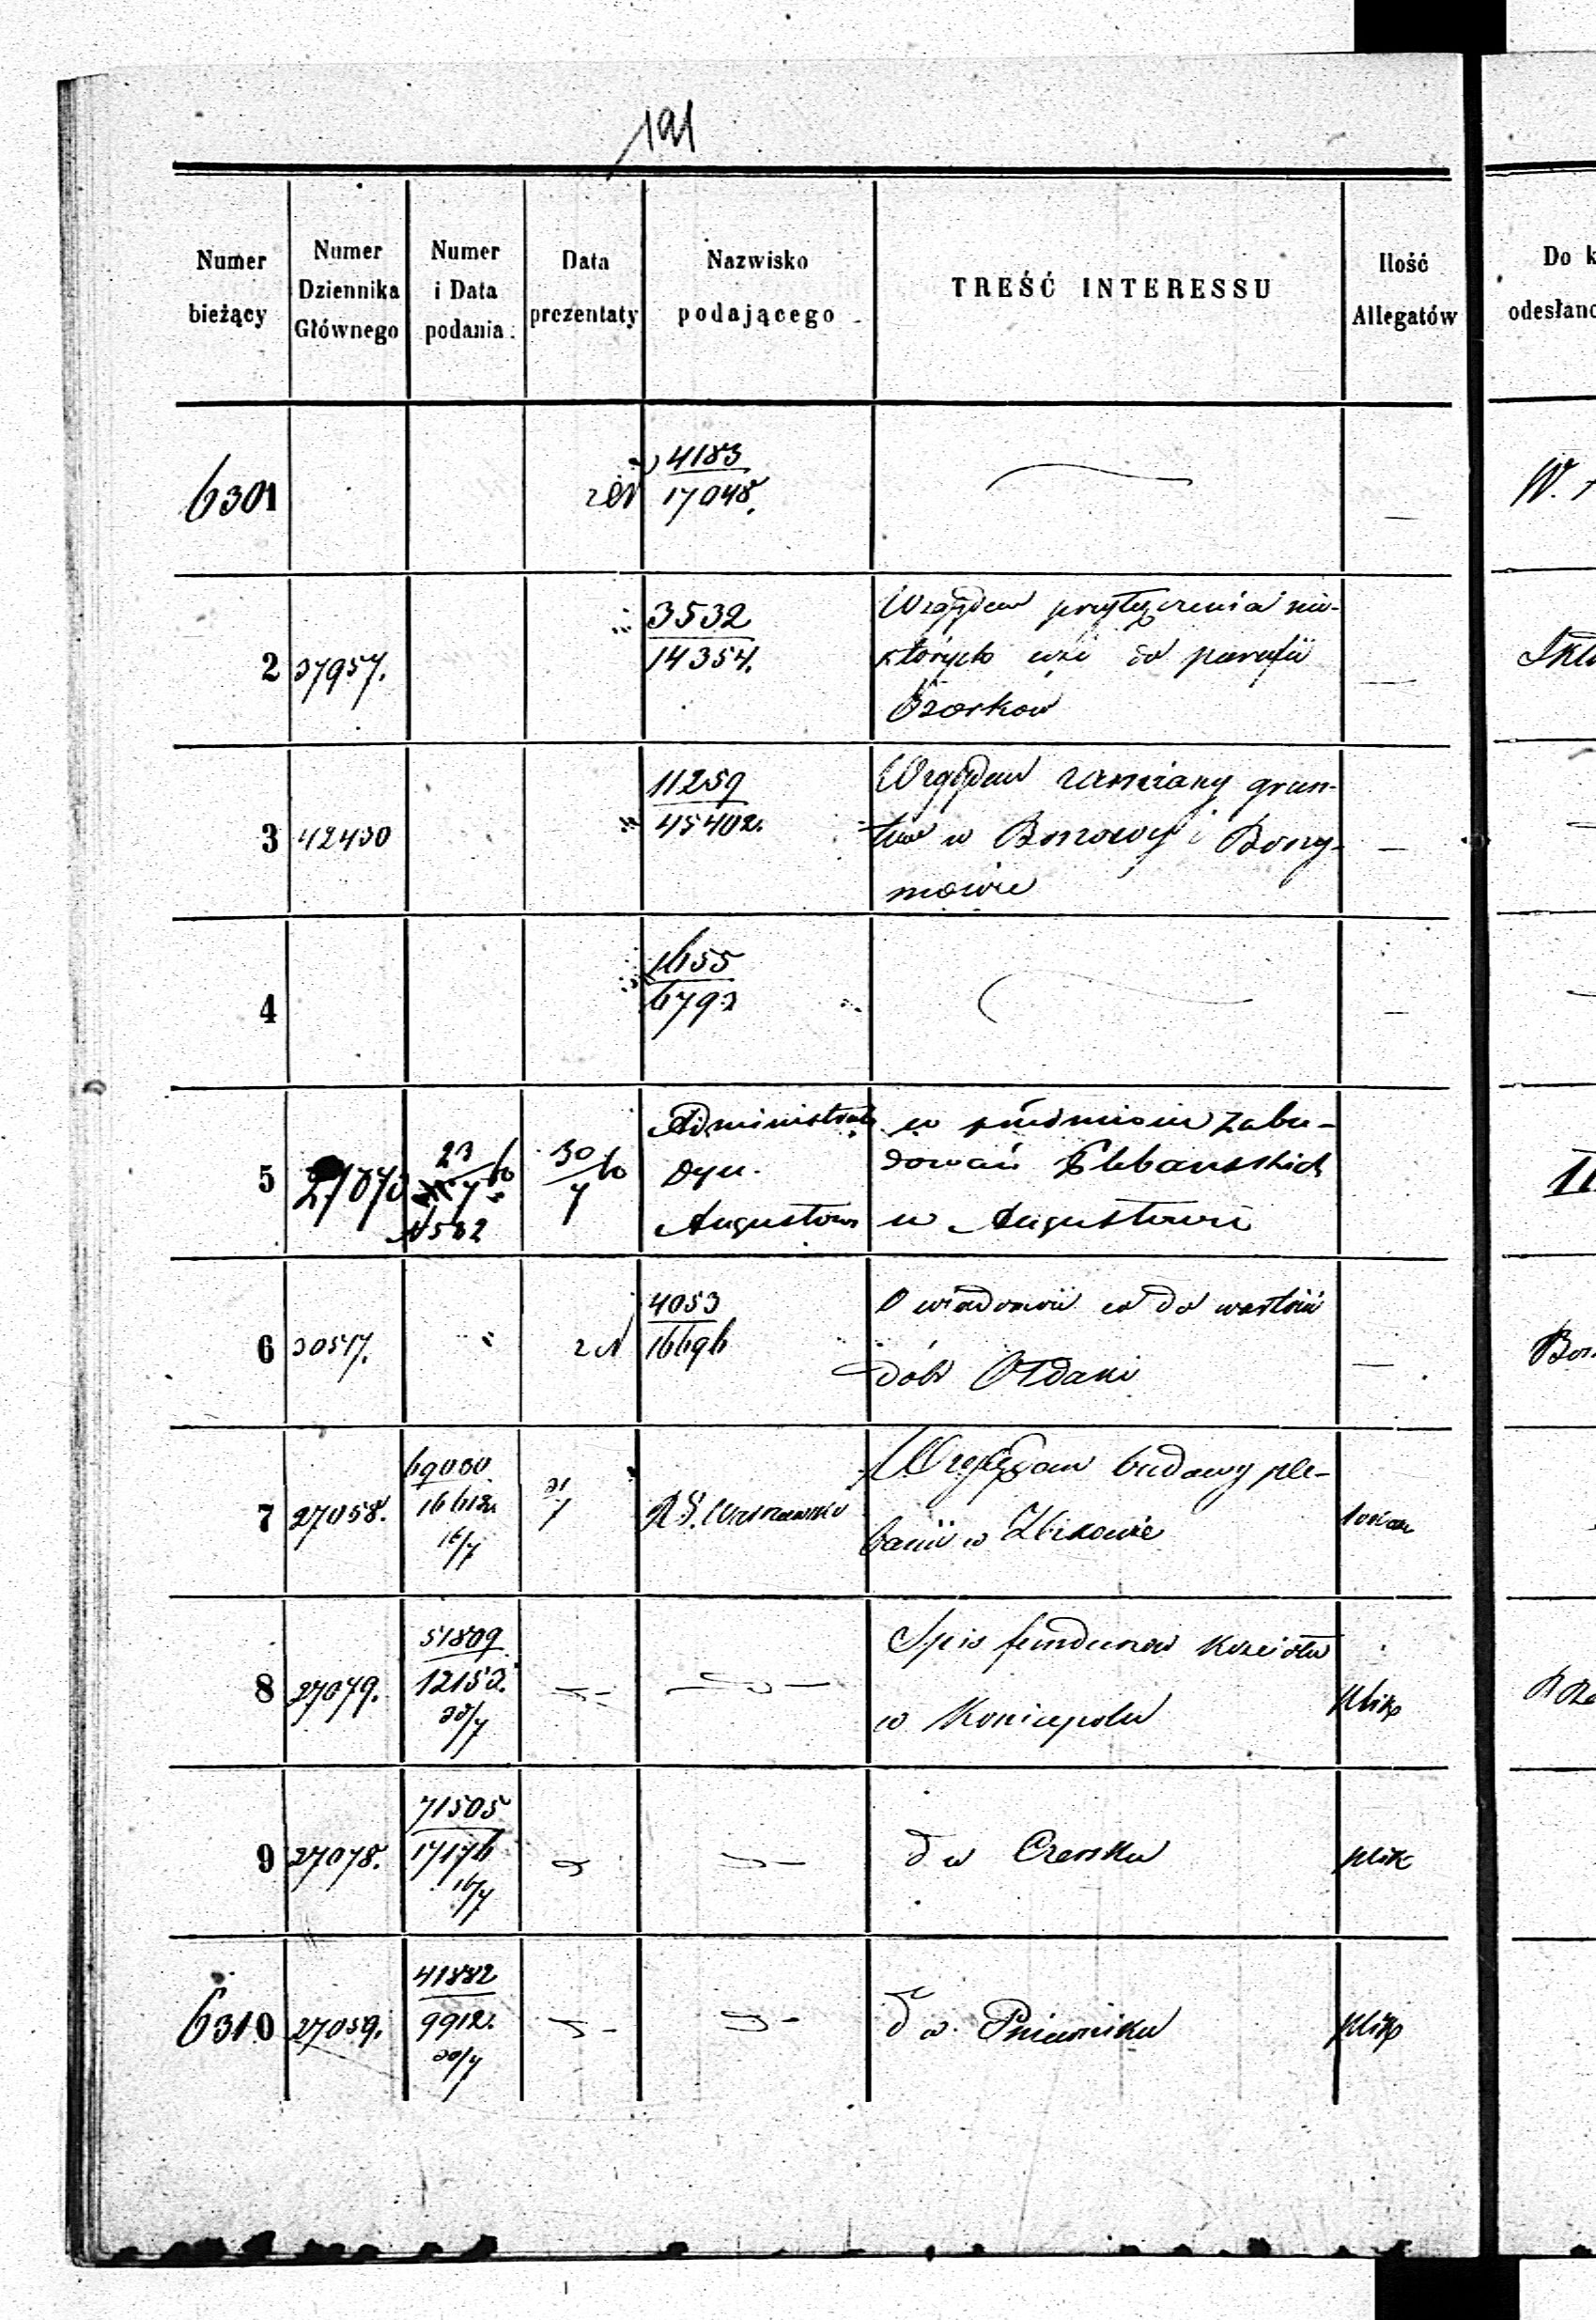 191
Numer bieżący
Numer Dziennika Głównego
Numer i Data podania
Data prezentaty
Nazwisko podającego
TREŚĆ INTERESSU
Ilość Allegatów
Do k
odesłano
6301
4183
17048.
—
W.
2 37957.
3532
14354.
Względem przyłączenia nie-
których wsi do parafii
Ozorków
—
3 42430
11259
45402.
Względem zamiany grun-
tów w Borzowy i Bony-
mowie
—
4
1655
6793
—
5 27070
23/7 60
N 502
30/7 60
Administrator
Dyec.
Augustows
w przedmiocie zabu-
dowań Plebanskich
w Augustowie
II
6 30517.
4053
16696
O wiadomość co do wartości
dóbr Ołdaki
—
7 27058.
69000
16612.
16/7
31/7
R.G. Warszawski
Względem budowy ple-
banii w Zbikowie
8 27079.
51809
12153.
20/7
Spis funduszów kościoła
w Koniecpolu
plik
9 27078.
71505
17176
16/7
d w Czersku
plik
6310 27059.
41882
9912.
20/7
d w Pniewniku
plik